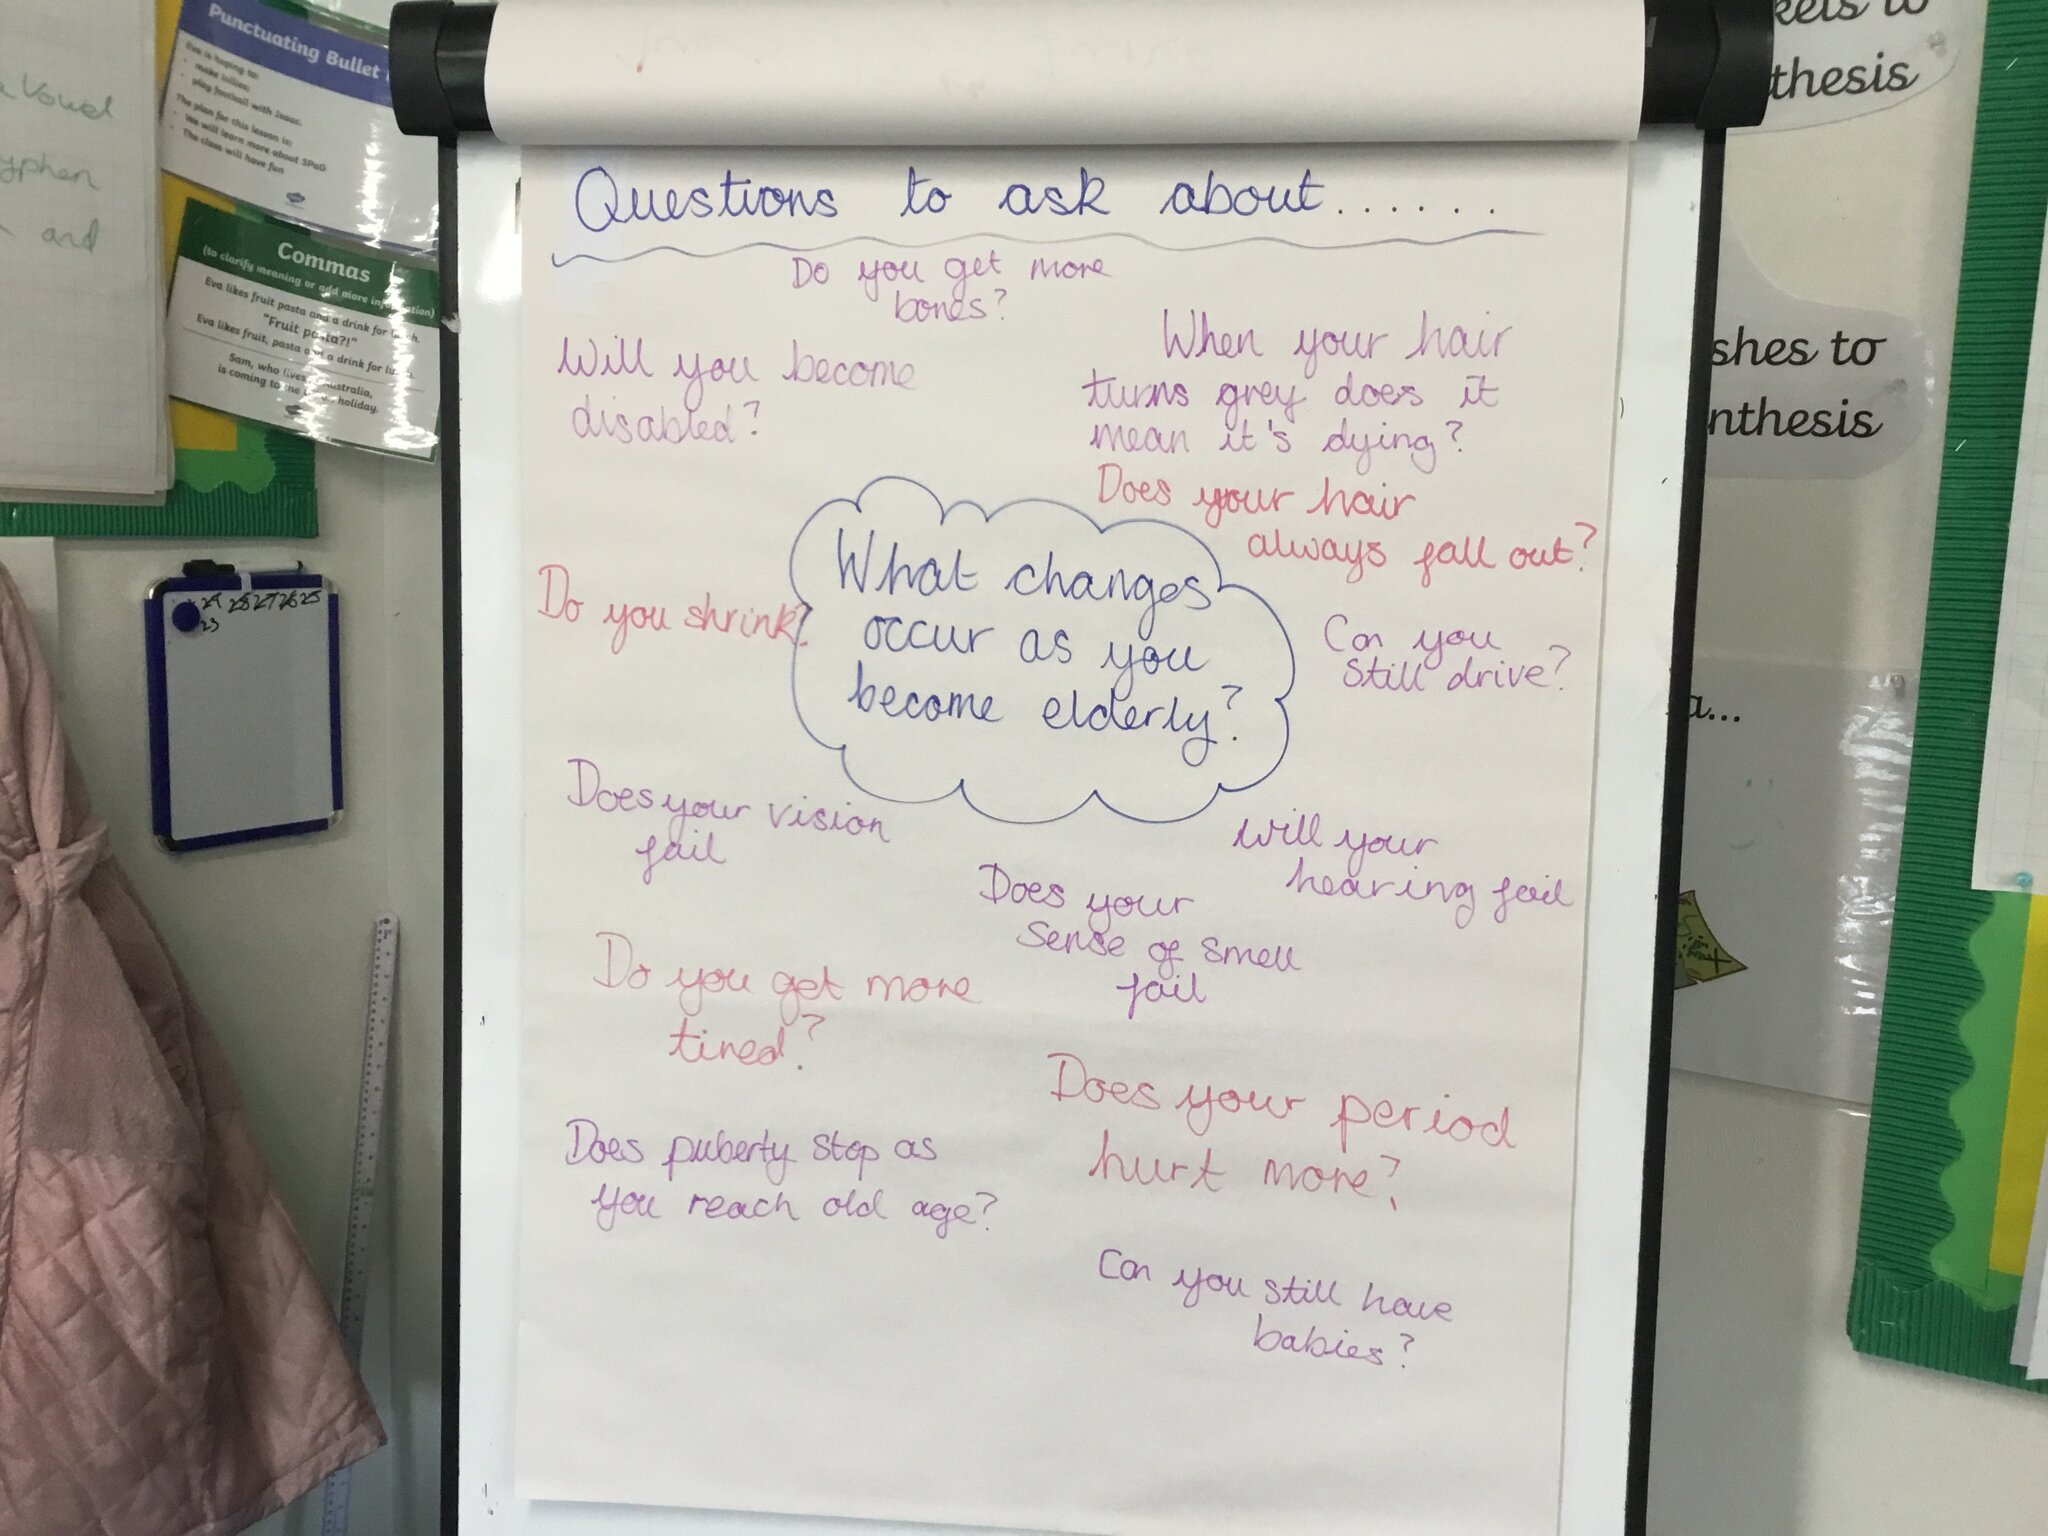 a vowel
yphen
and
Punctuating Bullet
Eva is hoping to:
• make lollies;
• play football with Isaac.
The plan for this lesson is:
• We will learn more about SPaG
• The class will have fun
Commas
(to clarify meaning or add more information)
Eva likes fruit pasta and a drink for lunch.
"Fruit pasta?!"
Eva likes fruit, pasta and a drink for lunch.
Sam, who lives Australia,
is coming to the holiday.
29 28 27 26 25
23
Questions to ask about......
Do you get more
bones?
Will you become
disabled?
When your hair
turns grey does it
mean it's dying?
Does your hair
always fall out?
What changes
occur as you
become elderly?
Do you shrink?
Can you
still drive?
Does your vision
fail
Will your
hearing fail
Does your
sense of smell
fail
Do you get more
tired?
Does your period
hurt more?
Does puberty stop as
you reach old age?
Can you still have
babies?
kets to
thesis
shes to
nthesis
a...